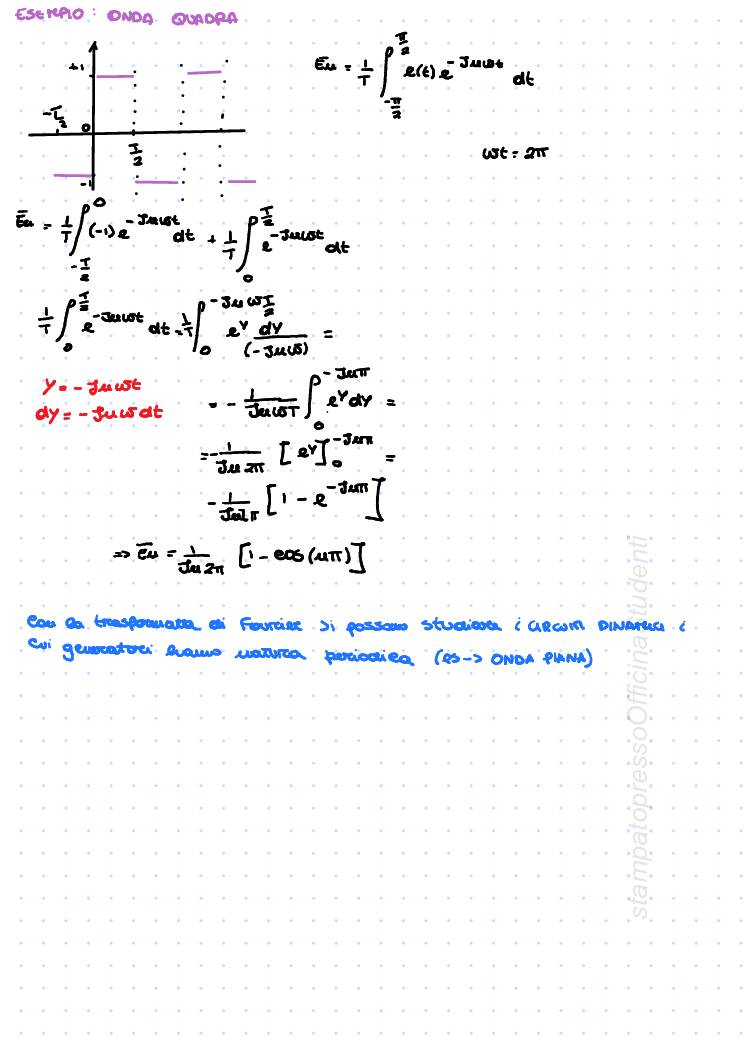 ESEMPIO: ONDA QUADRA
+1
-T/2
0
T/2
-1
Ēn = 1/T ∫_{-π/2}^{π/2} e(t) e^{-Jnωt} dt
ωt = 2π
Ēn = 1/T ∫_{-T/2}^{0} (-1) e^{-Jnωt} dt + 1/T ∫_{0}^{T/2} e^{-Jnωt} dt
1/T ∫_{0}^{T/2} e^{-Jnωt} dt = 1/T ∫_{0}^{-Jnω T/2} e^y dy/(-Jnω) =
y = -Jnωt
dy = -Jnω dt
= - 1/(JnωT) ∫_{0}^{-Jnπ} e^y dy =
= - 1/(Jn2π) [e^y]_{0}^{-Jnπ} =
- 1/(Jn2π) [1 - e^{-Jnπ}]
=> Ēn = 1/(Jn2π) [1 - cos(nπ)]
Con la trasformata di Fourier si possono studiare i CIRCUITI DINAMICI i
cui generatori hanno natura periodica (es -> ONDA PIANA)
stampatopressoOfficinaStudenti